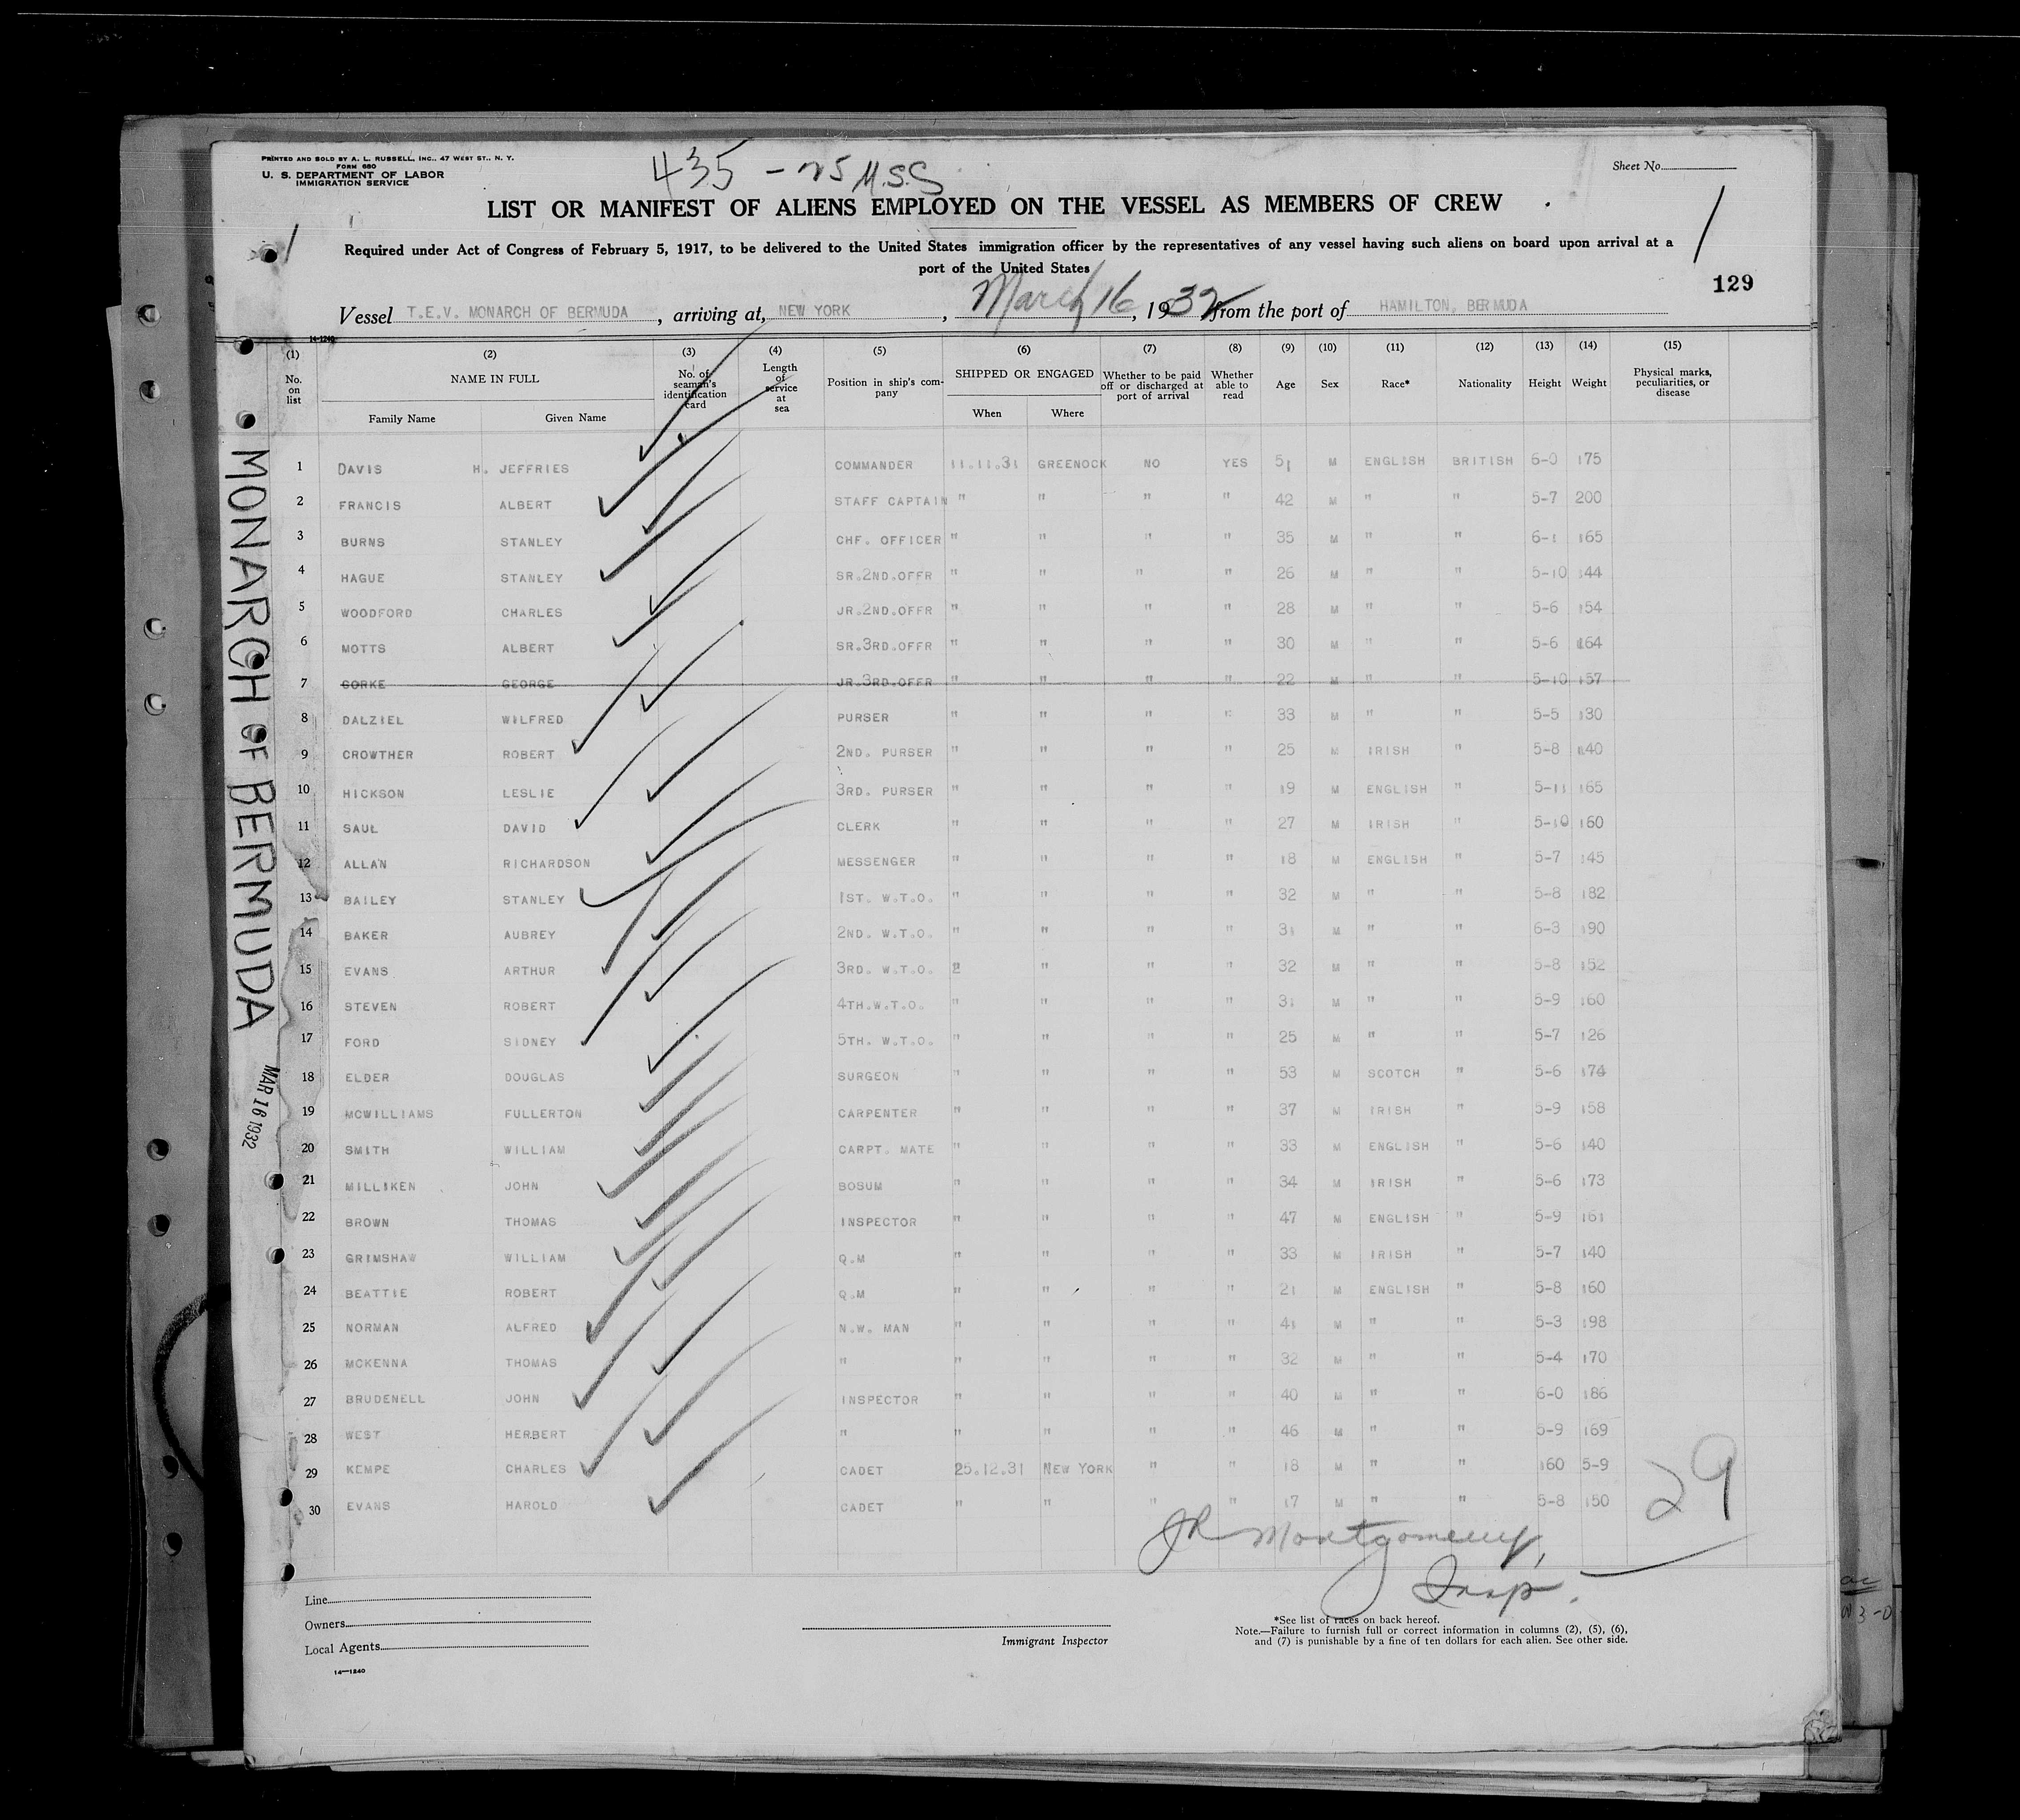 PRINTED AND SOLD BY A. L. RUSSELL, INC., 47 WEST ST., N. Y.
FORM 680
U. S. DEPARTMENT OF LABOR
IMMIGRATION SERVICE
435 - 25 M.S.S
Sheet No.
LIST OR MANIFEST OF ALIENS EMPLOYED ON THE VESSEL AS MEMBERS OF CREW
1
1
Required under Act of Congress of February 5, 1917, to be delivered to the United States immigration officer by the representatives of any vessel having such aliens on board upon arrival at a
port of the United States
129
Vessel T.E.V. MONARCH OF BERMUDA, arriving at, NEW YORK, March 16, 1932 from the port of HAMILTON, BERMUDA
14-1240
(1) (2) (3) (4) (5) (6) (7) (8) (9) (10) (11) (12) (13) (14) (15)
No. on list NAME IN FULL No. of seaman's identification card Length of service at sea Position in ship's company SHIPPED OR ENGAGED Whether to be paid off or discharged at port of arrival Whether able to read Age Sex Race* Nationality Height Weight Physical marks, peculiarities, or disease
Family Name Given Name When Where
1 DAVIS H. JEFFRIES COMMANDER 11.11.31 GREENOCK NO YES 51 M ENGLISH BRITISH 6-0 175
2 FRANCIS ALBERT STAFF CAPTAIN " " " " 42 M " " 5-7 200
3 BURNS STANLEY CHF. OFFICER " " " " 35 M " " 6-1 165
4 HAGUE STANLEY SR.2ND.OFFR " " " " 26 M " " 5-10 144
5 WOODFORD CHARLES JR.2ND.OFFR " " " " 28 M " " 5-6 154
6 MOTTS ALBERT SR.3RD.OFFR " " " " 30 M " " 5-6 164
7 GORKE GEORGE JR.3RD.OFFR " " " " 22 M " " 5-10 157
8 DALZIEL WILFRED PURSER " " " " 33 M " " 5-5 130
9 CROWTHER ROBERT 2ND. PURSER " " " " 25 M IRISH " 5-8 140
10 HICKSON LESLIE 3RD. PURSER " " " " 19 M ENGLISH " 5-11 165
11 SAUL DAVID CLERK " " " " 27 M IRISH " 5-10 160
12 ALLAN RICHARDSON MESSENGER " " " " 18 M ENGLISH " 5-7 145
13 BAILEY STANLEY 1ST. W.T.O. " " " " 32 M " " 5-8 182
14 BAKER AUBREY 2ND. W.T.O. " " " " 31 M " " 6-3 190
15 EVANS ARTHUR 3RD. W.T.O. " " " " 32 M " " 5-8 152
16 STEVEN ROBERT 4TH.W.T.O. " " " " 31 M " " 5-9 160
17 FORD SIDNEY 5TH. W.T.O. " " " " 25 M " " 5-7 126
18 ELDER DOUGLAS SURGEON " " " " 53 M SCOTCH " 5-6 174
19 MCWILLIAMS FULLERTON CARPENTER " " " " 37 M IRISH " 5-9 158
20 SMITH WILLIAM CARPT. MATE " " " " 33 M ENGLISH " 5-6 140
21 MILLIKEN JOHN BOSUM " " " " 34 M IRISH " 5-6 173
22 BROWN THOMAS INSPECTOR " " " " 47 M ENGLISH " 5-9 161
23 GRIMSHAW WILLIAM Q.M " " " " 33 M IRISH " 5-7 140
24 BEATTIE ROBERT Q.M " " " " 21 M ENGLISH " 5-8 160
25 NORMAN ALFRED N.W. MAN " " " " 41 M " " 5-3 198
26 MCKENNA THOMAS " " " " " 32 M " " 5-4 170
27 BRUDENELL JOHN INSPECTOR " " " " 40 M " " 6-0 186
28 WEST HERBERT " " " " " 46 M " " 5-9 169
29 KEMPE CHARLES CADET 25.12.31 NEW YORK " " 18 M " " 160 5-9
30 EVANS HAROLD CADET " " " " 17 M " " 5-8 150
29
JR Montgomery,
Insp.
MONARCH OF BERMUDA
MAR 16 1932
Line
Owners
Local Agents
Immigrant Inspector
*See list of races on back hereof.
Note.—Failure to furnish full or correct information in columns (2), (5), (6),
and (7) is punishable by a fine of ten dollars for each alien. See other side.
14—1240